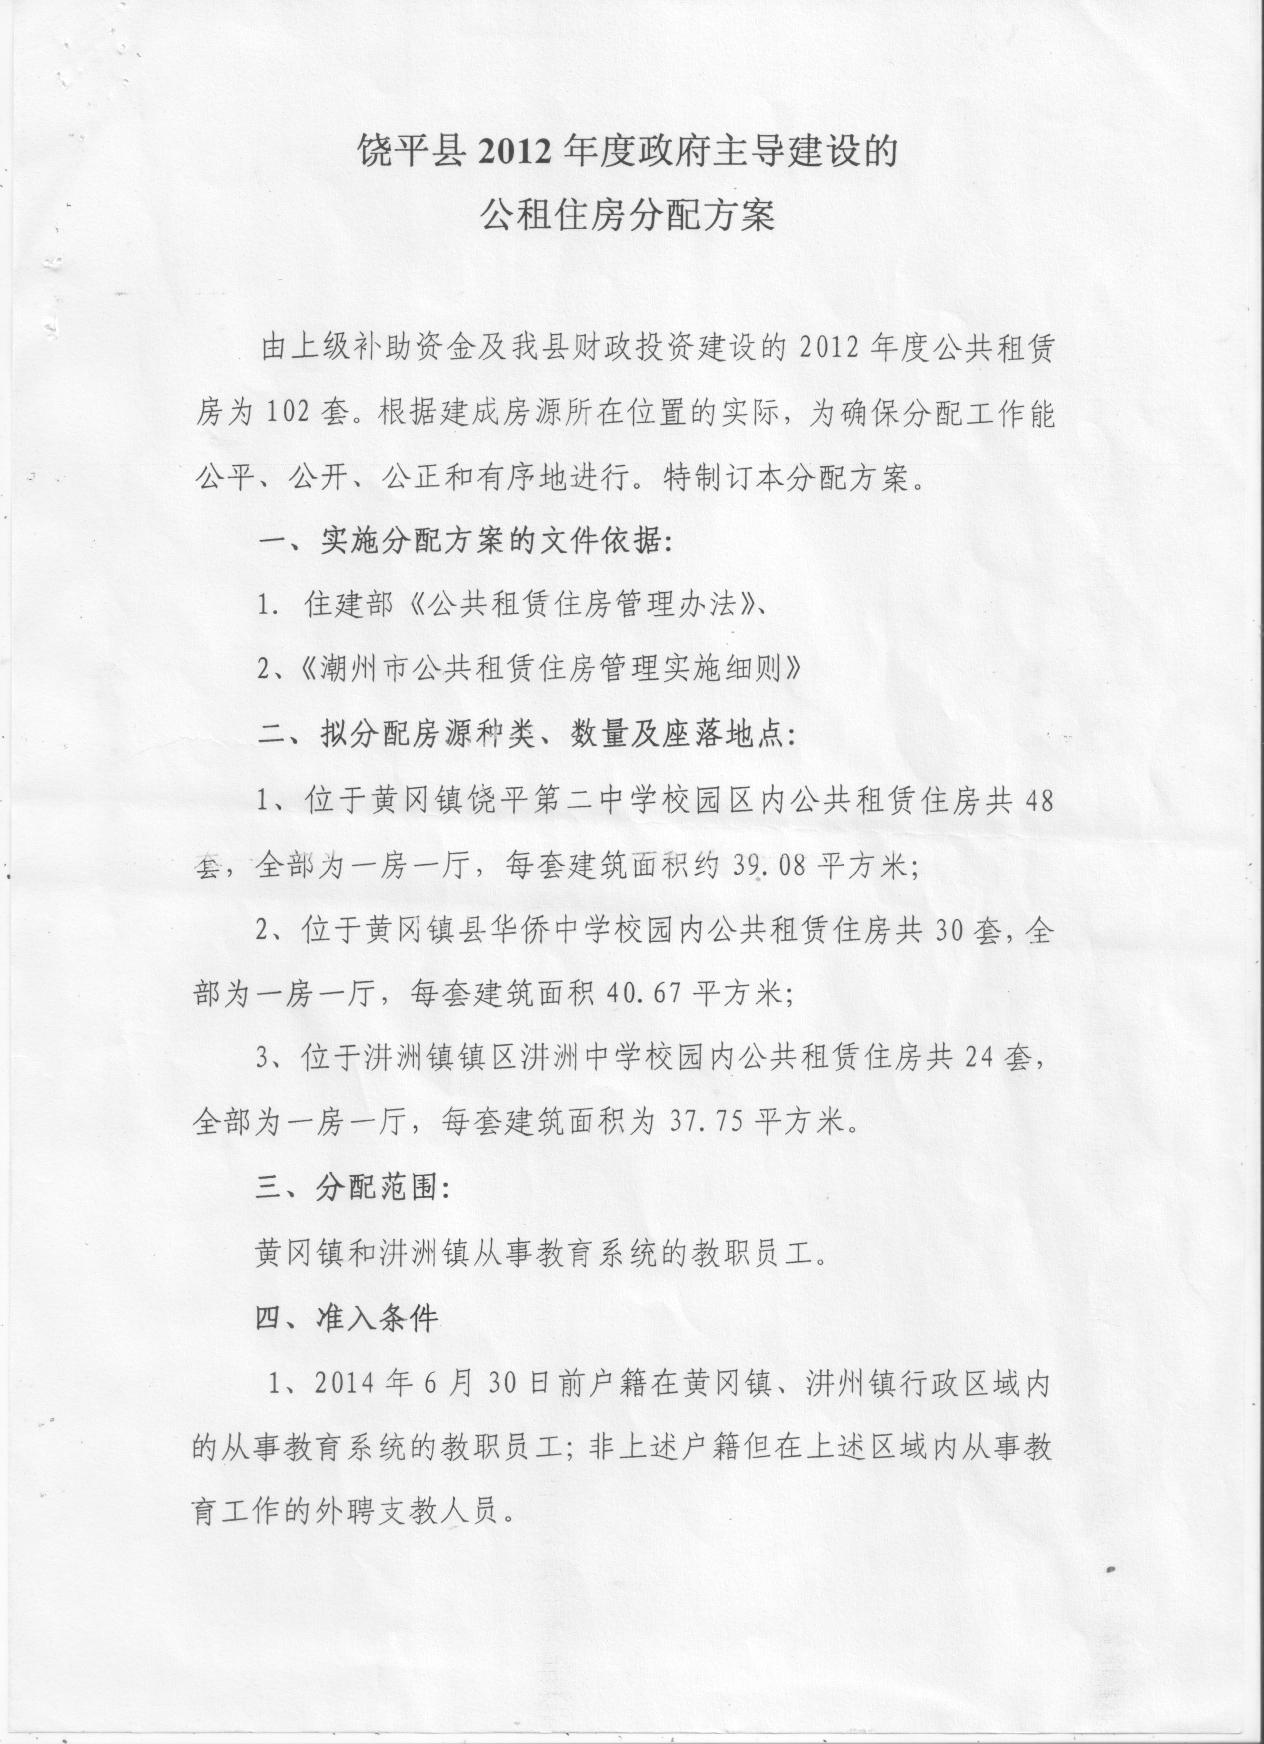 饶平县 2012 年度政府主导建设的
公租住房分配方案
由上级补助资金及我县财政投资建设的 2012 年度公共租赁
房为 102 套。根据建成房源所在位置的实际，为确保分配工作能
公平、公开、公正和有序地进行。特制订本分配方案。
一、实施分配方案的文件依据：
1. 住建部《公共租赁住房管理办法》、
2、《潮州市公共租赁住房管理实施细则》
二、拟分配房源种类、数量及座落地点：
1、位于黄冈镇饶平第二中学校园区内公共租赁住房共 48
套，全部为一房一厅，每套建筑面积约 39.08 平方米；
2、位于黄冈镇县华侨中学校园内公共租赁住房共 30 套，全
部为一房一厅，每套建筑面积 40.67 平方米；
3、位于汫洲镇镇区汫洲中学校园内公共租赁住房共 24 套，
全部为一房一厅，每套建筑面积为 37.75 平方米。
三、分配范围：
黄冈镇和汫洲镇从事教育系统的教职员工。
四、准入条件
1、2014 年 6 月 30 日前户籍在黄冈镇、汫州镇行政区域内
的从事教育系统的教职员工；非上述户籍但在上述区域内从事教
育工作的外聘支教人员。